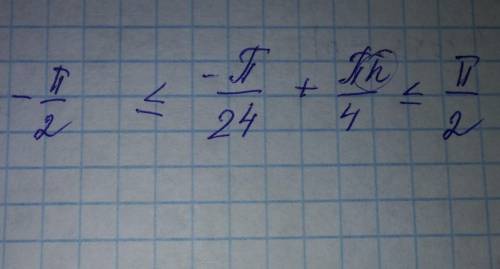 -π/2 ≤ -π/24 + πn/4 ≤ π/2